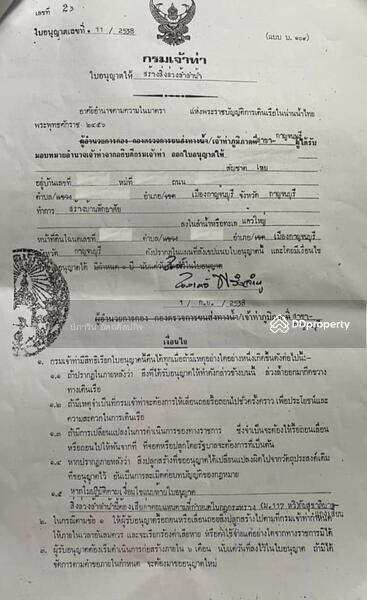 เลขที่ 23
ใบอนุญาตเลขที่ 11 / 2538
(แบบ บ. ๑๐๙)
กรมเจ้าท่า
ใบอนุญาตให้ สร้างสิ่งล่วงล้ำลำน้ำ
อาศัยอำนาจตามความในมาตรา แห่งพระราชบัญญัติการเดินเรือในน่านน้ำไทย
พระพุทธศักราช ๒๔๕๖
ผู้อำนวยการกอง กองตรวจการขนส่งทางน้ำ/เจ้าท่าภูมิภาคที่ สาขา กาญจนบุรี ผู้ได้รับ
มอบหมายอำนาจเจ้าท่าจากอธิบดีกรมเจ้าท่า ออกใบอนุญาตให้
สัญชาติ ไทย
อยู่บ้านเลขที่ หมู่ที่ ถนน
ตำบล/แขวง อำเภอ/เขต เมืองกาญจนบุรี จังหวัด กาญจนบุรี
ทำการ สร้างบ้านพักอาศัย
ลงในลำน้ำหรือทะเล แควใหญ่
หน้าที่ดินโฉนดเลขที่ ตำบล/แขวง อำเภอ/เขต เมืองกาญจนบุรี
จังหวัด กาญจนบุรี ดังปรากฏในแผนที่สังเขปแนบใบอนุญาตนี้ และโดยมีเงื่อนไข
1 / ก.ย. / 2538
ผู้อำนวยการกอง กองตรวจการขนส่งทางน้ำ/เจ้าท่าภูมิภาคที่ สาขา
DDproperty
เงื่อนไข
๑. กรมเจ้าท่ามีสิทธิเรียกใบอนุญาตนี้คืนได้ทุกเมื่อถ้ามีเหตุอย่างใดอย่างหนึ่งเกิดขึ้นดังต่อไปนี้:-
๑.๑ ถ้าปรากฏในภายหลังว่า สิ่งที่ได้รับอนุญาตให้ทำดังกล่าวข้างบนนี้ ล่วงล้ำออกมากีดขวาง
ทางเดินเรือ
๑.๒ ถ้ามีเหตุจำเป็นที่กรมเจ้าท่าจะต้องการให้เลื่อนถอยรื้อถอนไปชั่วครั้งคราว เพื่อประโยชน์และ
ความสะดวกในการเดินเรือ
๑.๓ ถ้ามีการเปลี่ยนแปลงในดำเนินการของทางราชการ ซึ่งจำเป็นจะต้องให้รื้อถอนเลื่อน
หรือถอนไปให้พ้นจากที่
๑.๔ หากปรากฏภายหลังว่า สิ่งปลูกสร้างที่ขออนุญาตได้เปลี่ยนแปลงผิดไปจากวัตถุประสงค์เดิม
ที่ขออนุญาตไว้ อันเป็นการละเมิดต่อบทบัญญัติของกฎหมาย
๑.๕ หากไม่ปฏิบัติตามเงื่อนไขแนบท้ายใบอนุญาต
๒. ในกรณีตามข้อ ๑ ให้ผู้รับอนุญาตรื้อถอนหรือเลื่อนถอยสิ่งปลูกสร้างไปตามที่กรมเจ้าท่ากำหนดให้
ให้ภายในเวลาอันสมควร และจะเรียกร้องค่าเสียหาย หรือค่าใช้จ่ายแต่อย่างใดจากทางราชการมิได้
๓. ผู้รับอนุญาตต้องเริ่มดำเนินการก่อสร้างภายใน ๖ เดือน นับแต่วันที่ลงไว้ในใบอนุญาต ถ้ามิได้
จัดการตามคำขอภายในกำหนด จะต้องมาขออนุญาตใหม่